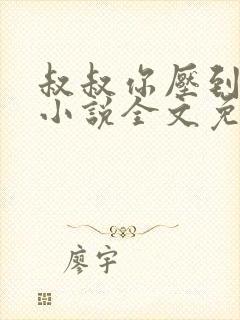 叔叔你壓到
小說全文免
廖宇